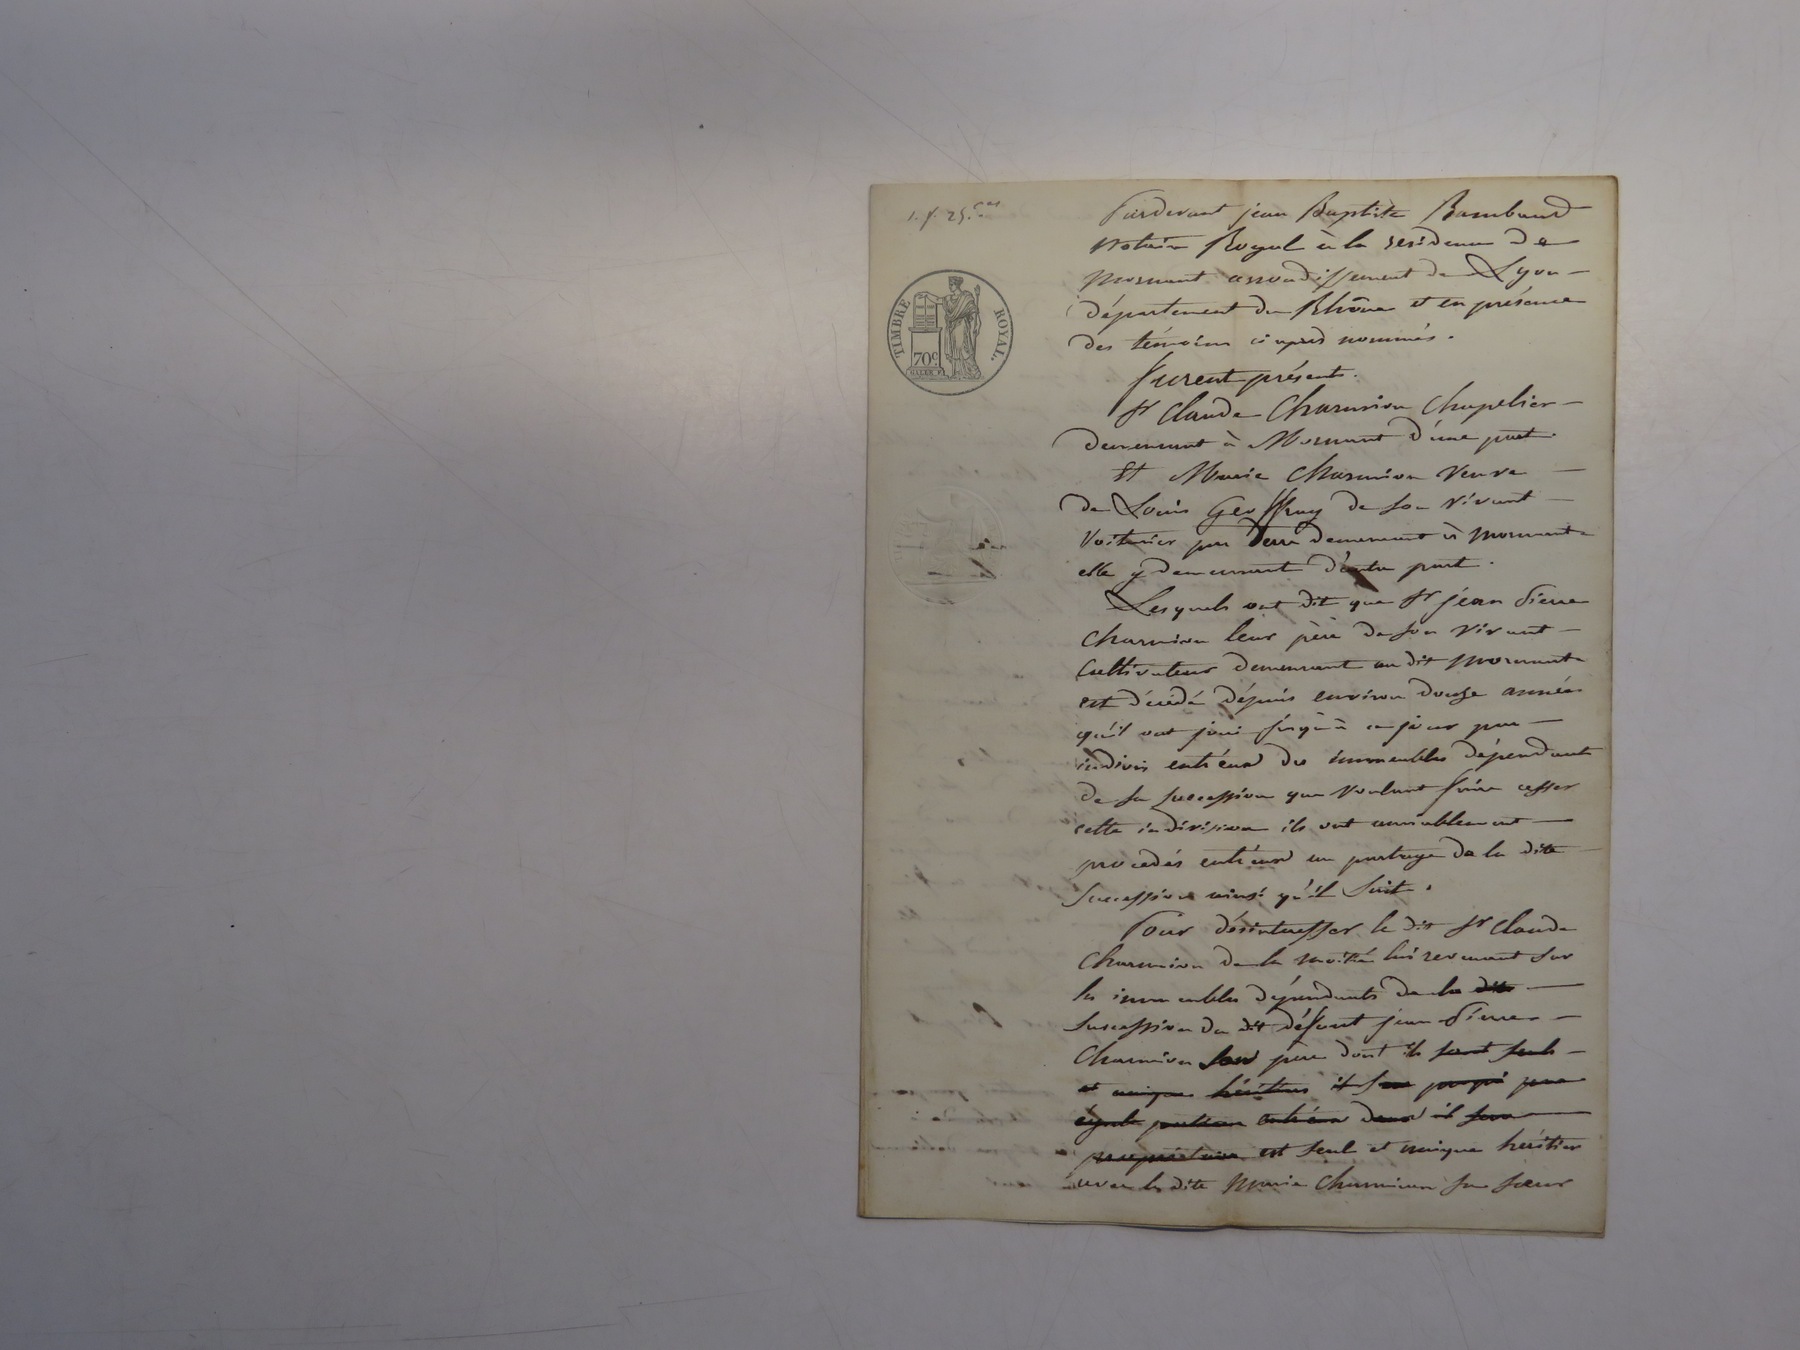 1. f. 25.c es
TIMBRE ROYAL.
70c.
Pardevant jean Baptiste Rambaud
Notaire Royal à la residence de
Mornant arrondissement de Lyon
département du Rhône et en présence
des témoins ci après nommés.
furent présents.
Sr Claude Charmion Chapelier
demeurant à Mornant d'une part.
Et Marie Charmion Veuve
de Louis Geoffray de son vivant
Voiturier par terre demeurant à Mornant
elle y demeurant d'autre part.
Lesquels ont dit que Sr jean Pierre
Charmion leur père de son vivant
Cultivateur demeurant au dit Mornant
est décédé dépuis environ douze années
qu'il ont joui jusqu'à ce jour par
indivis entr'eux des immeubles dépendant
de sa succession que voulant faire cesser
cette indivision ils ont amiablement
procedés entr'eux au partage de la dite
succession ainsi qu'il suit.
Pour désintéresser le dit Sr Claude
Charmion de la moitié lui revenant sur
les immeubles dépendants de la dite
succession du dit défunt jean Pierre
Charmion son père dont ils sont seuls
et unique héritiers
égale portion entr'eux deux il sera
propriétaire est seul et unique héritier
avec la dite Marie Charmion sa sœur